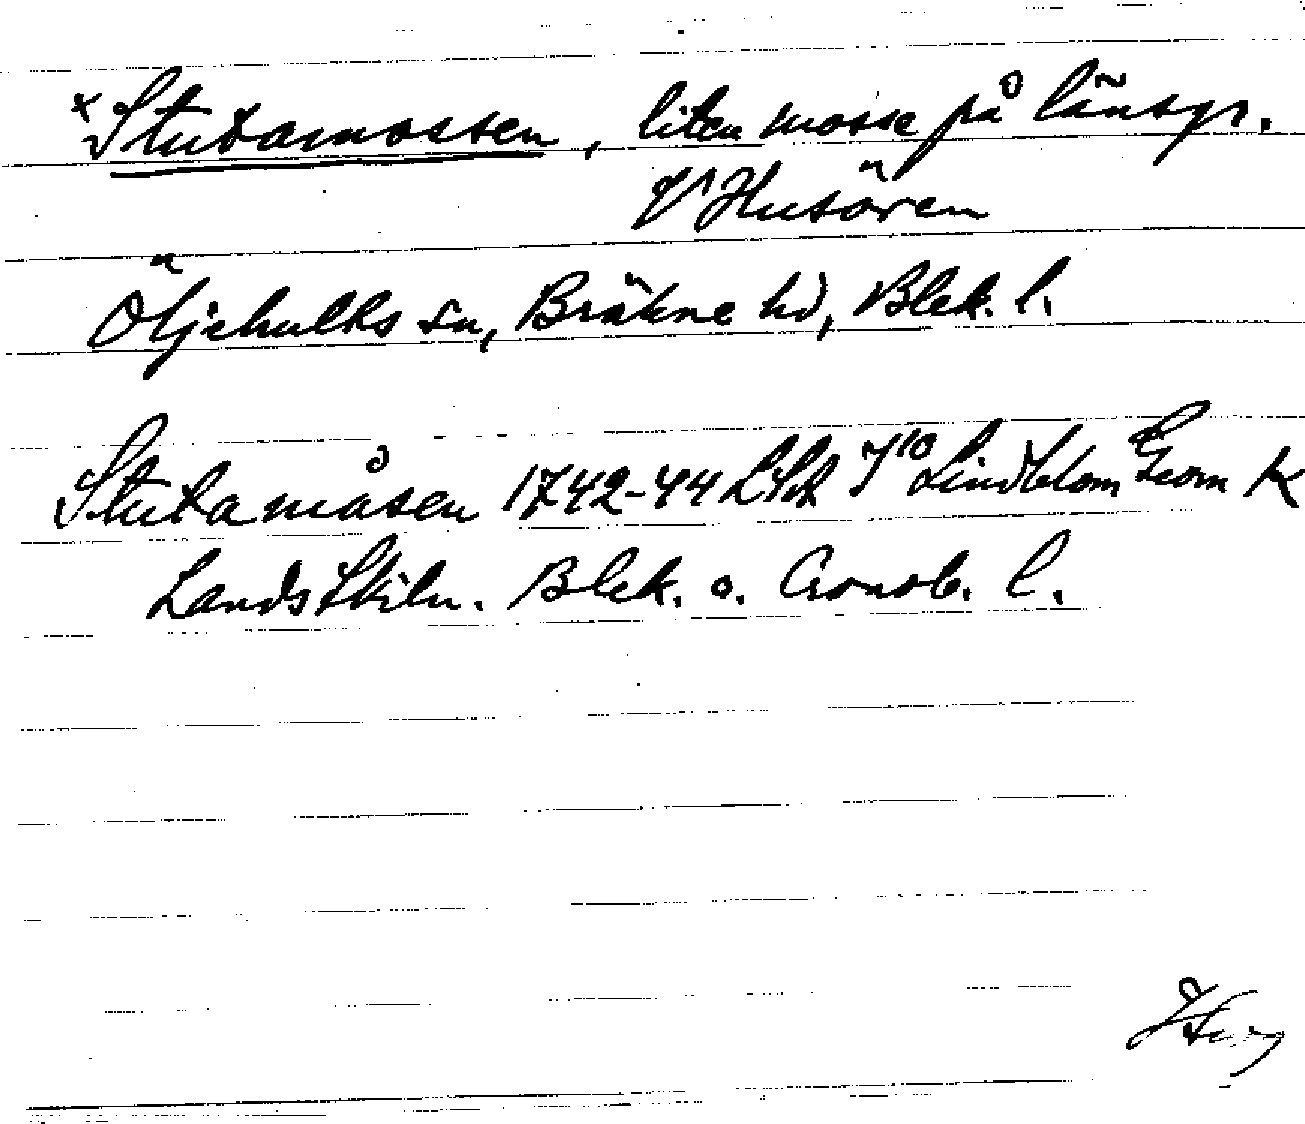 x Stutamossen, liten mosse på länsgr.
V Husören
Öljehults sn, Bräkne hd, Blek. l.
Stutamåsen 1742-44 LSA J 10 Lindblom Geom K
Landsskiln. Blek. o. Cronob. l.